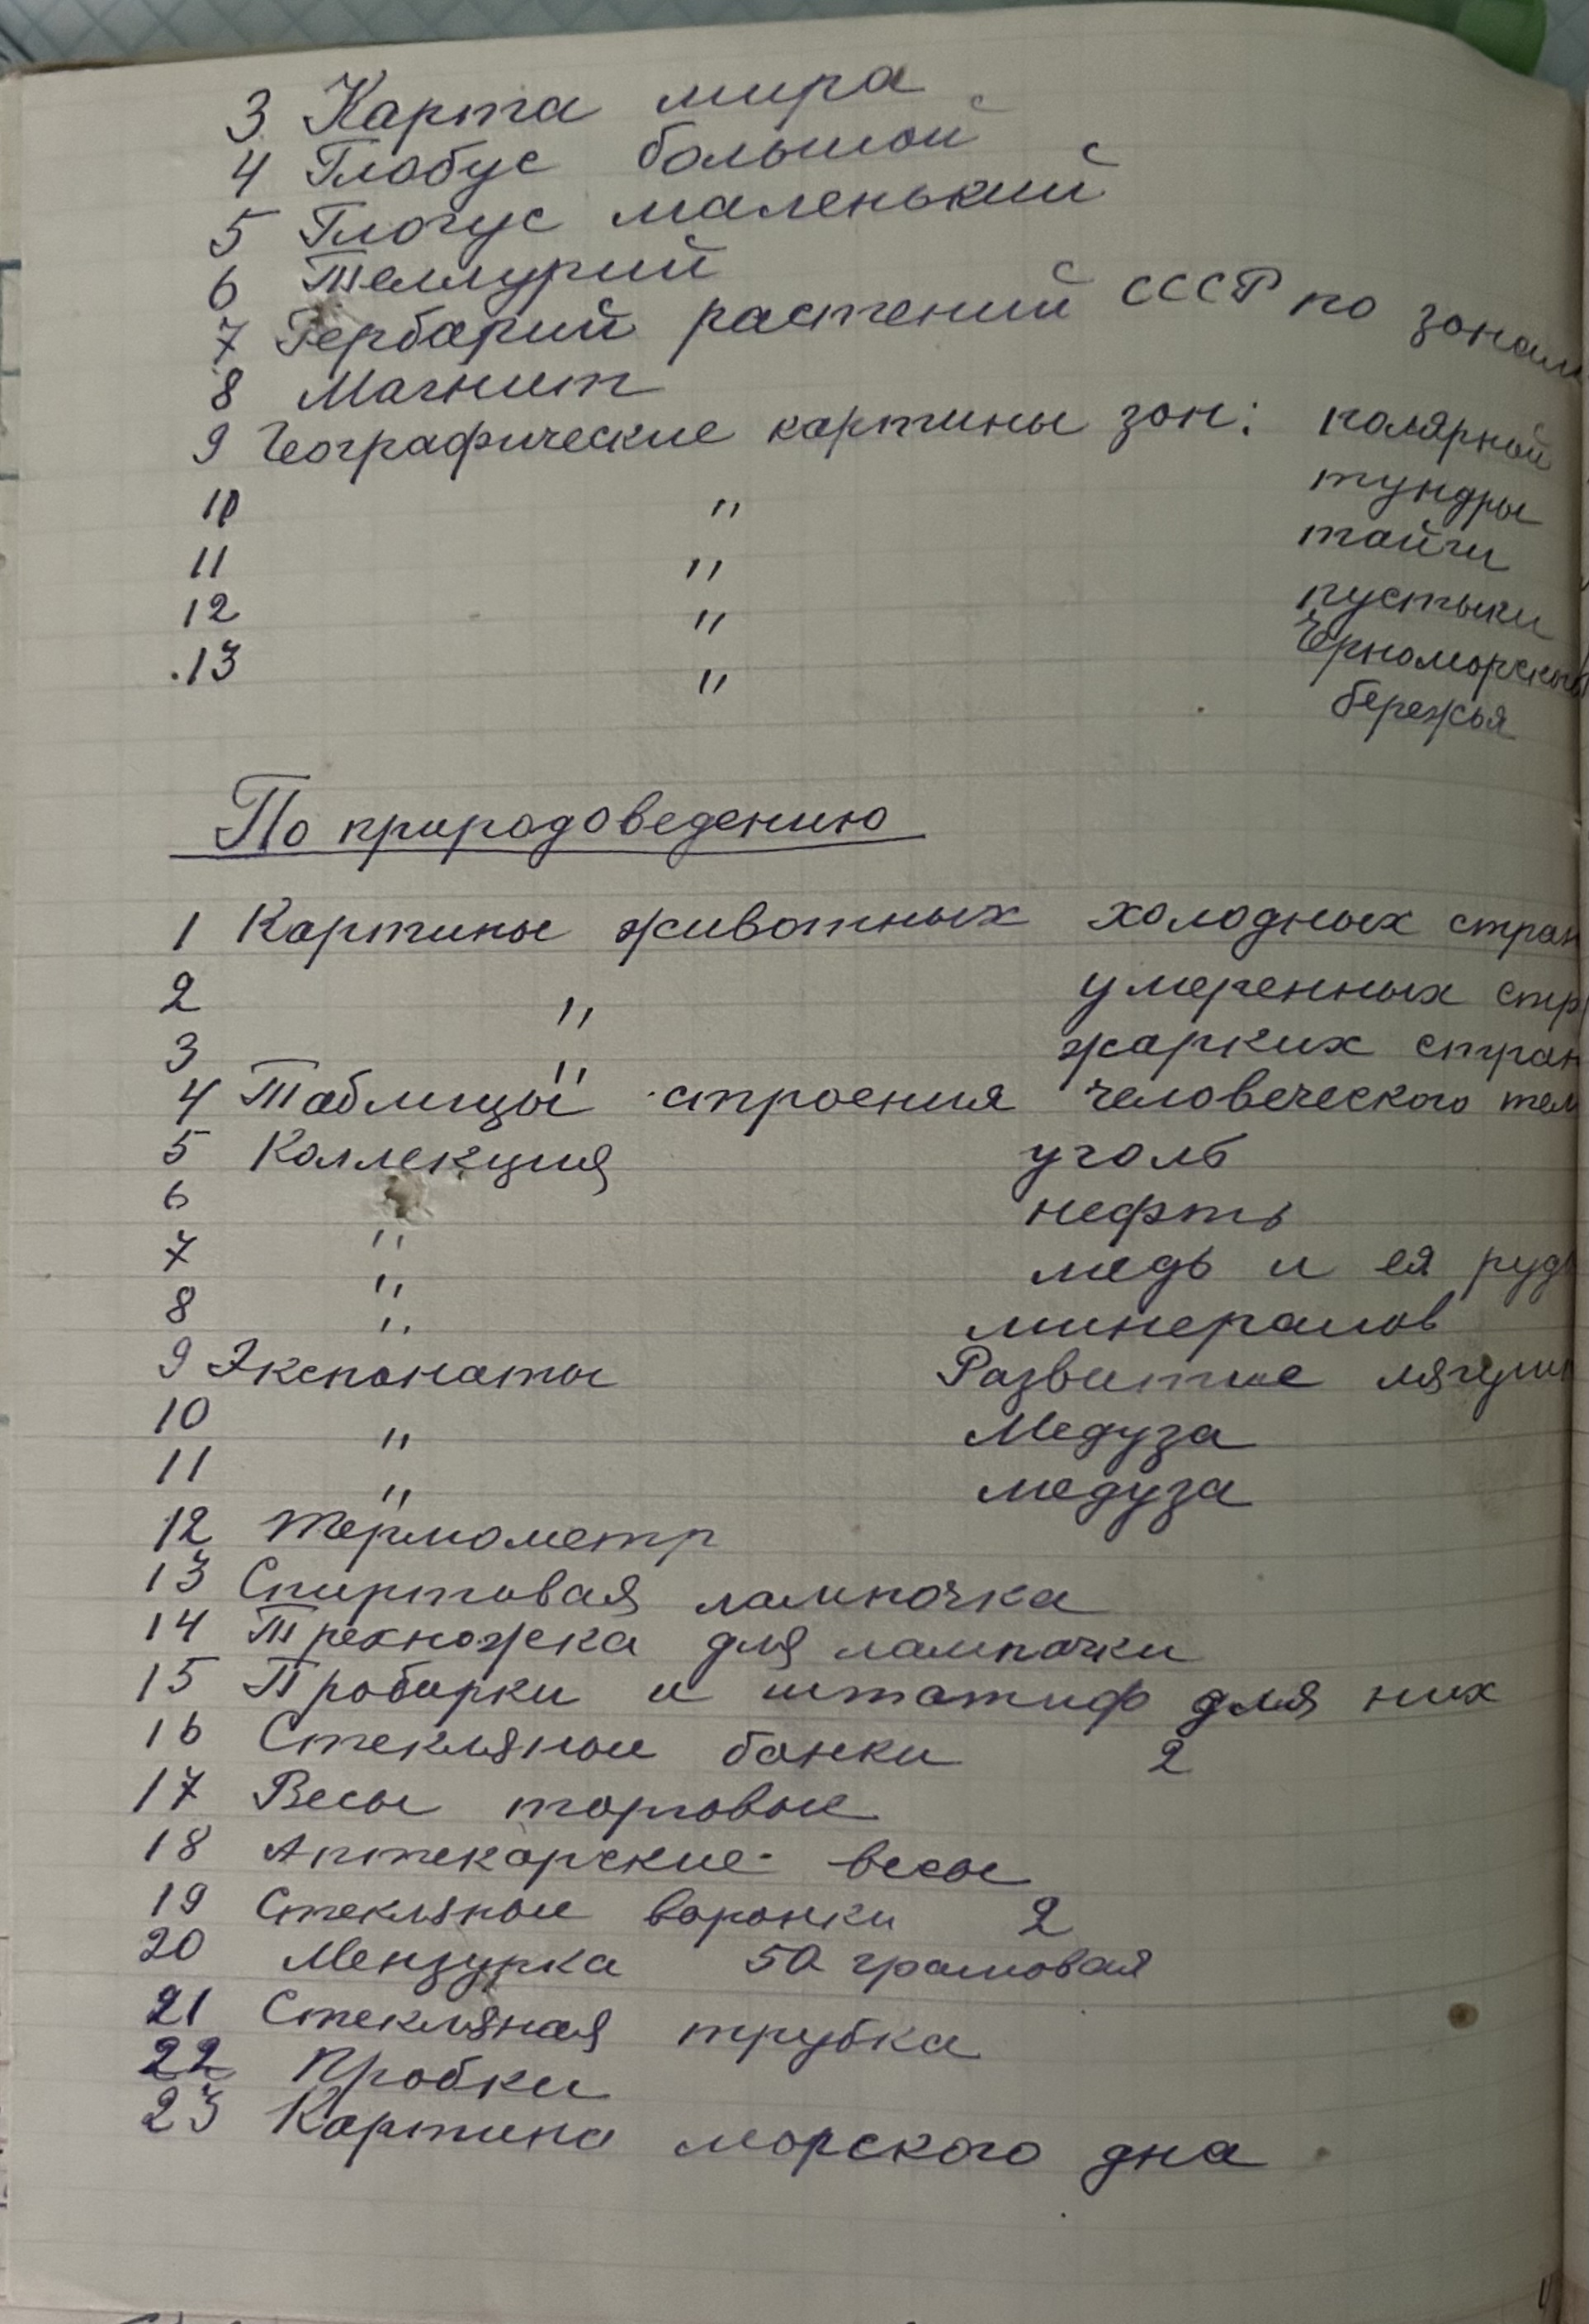 3 Карта мира
4 Глобус большой
5 Глогус маленький
6 Теллурий
7 Гербарий растений СССР по зонам
8 Магнит
9 Географические картины зон: полярной
10 " тундры
11 " тайги
12 " пустыни
13 " Черноморского
бережья
По природоведению
1 Картины животных холодных стран
2 " умеренных стр
3 " жарких стран
4 Таблицы строения человеческого тел
5 Коллекция уголь
6 нефть
7 " медь и ея руды
8 " минералов
" 
9 Экспонаты Развитие лягуш
10 " Медуза
11 " медуза
12 Термометр
13 Спиртовая лампочка
14 Треножка для лампочки
15 Пробирки и штатиф для них
16 Стекляные банки 2
17 Весы торговые
18 Аптекарские весы
19 Стекляные воронки 2
20 Мензурка 50 грамовая
21 Стекляная трубка
22 Пробки
23 Картина морского дна